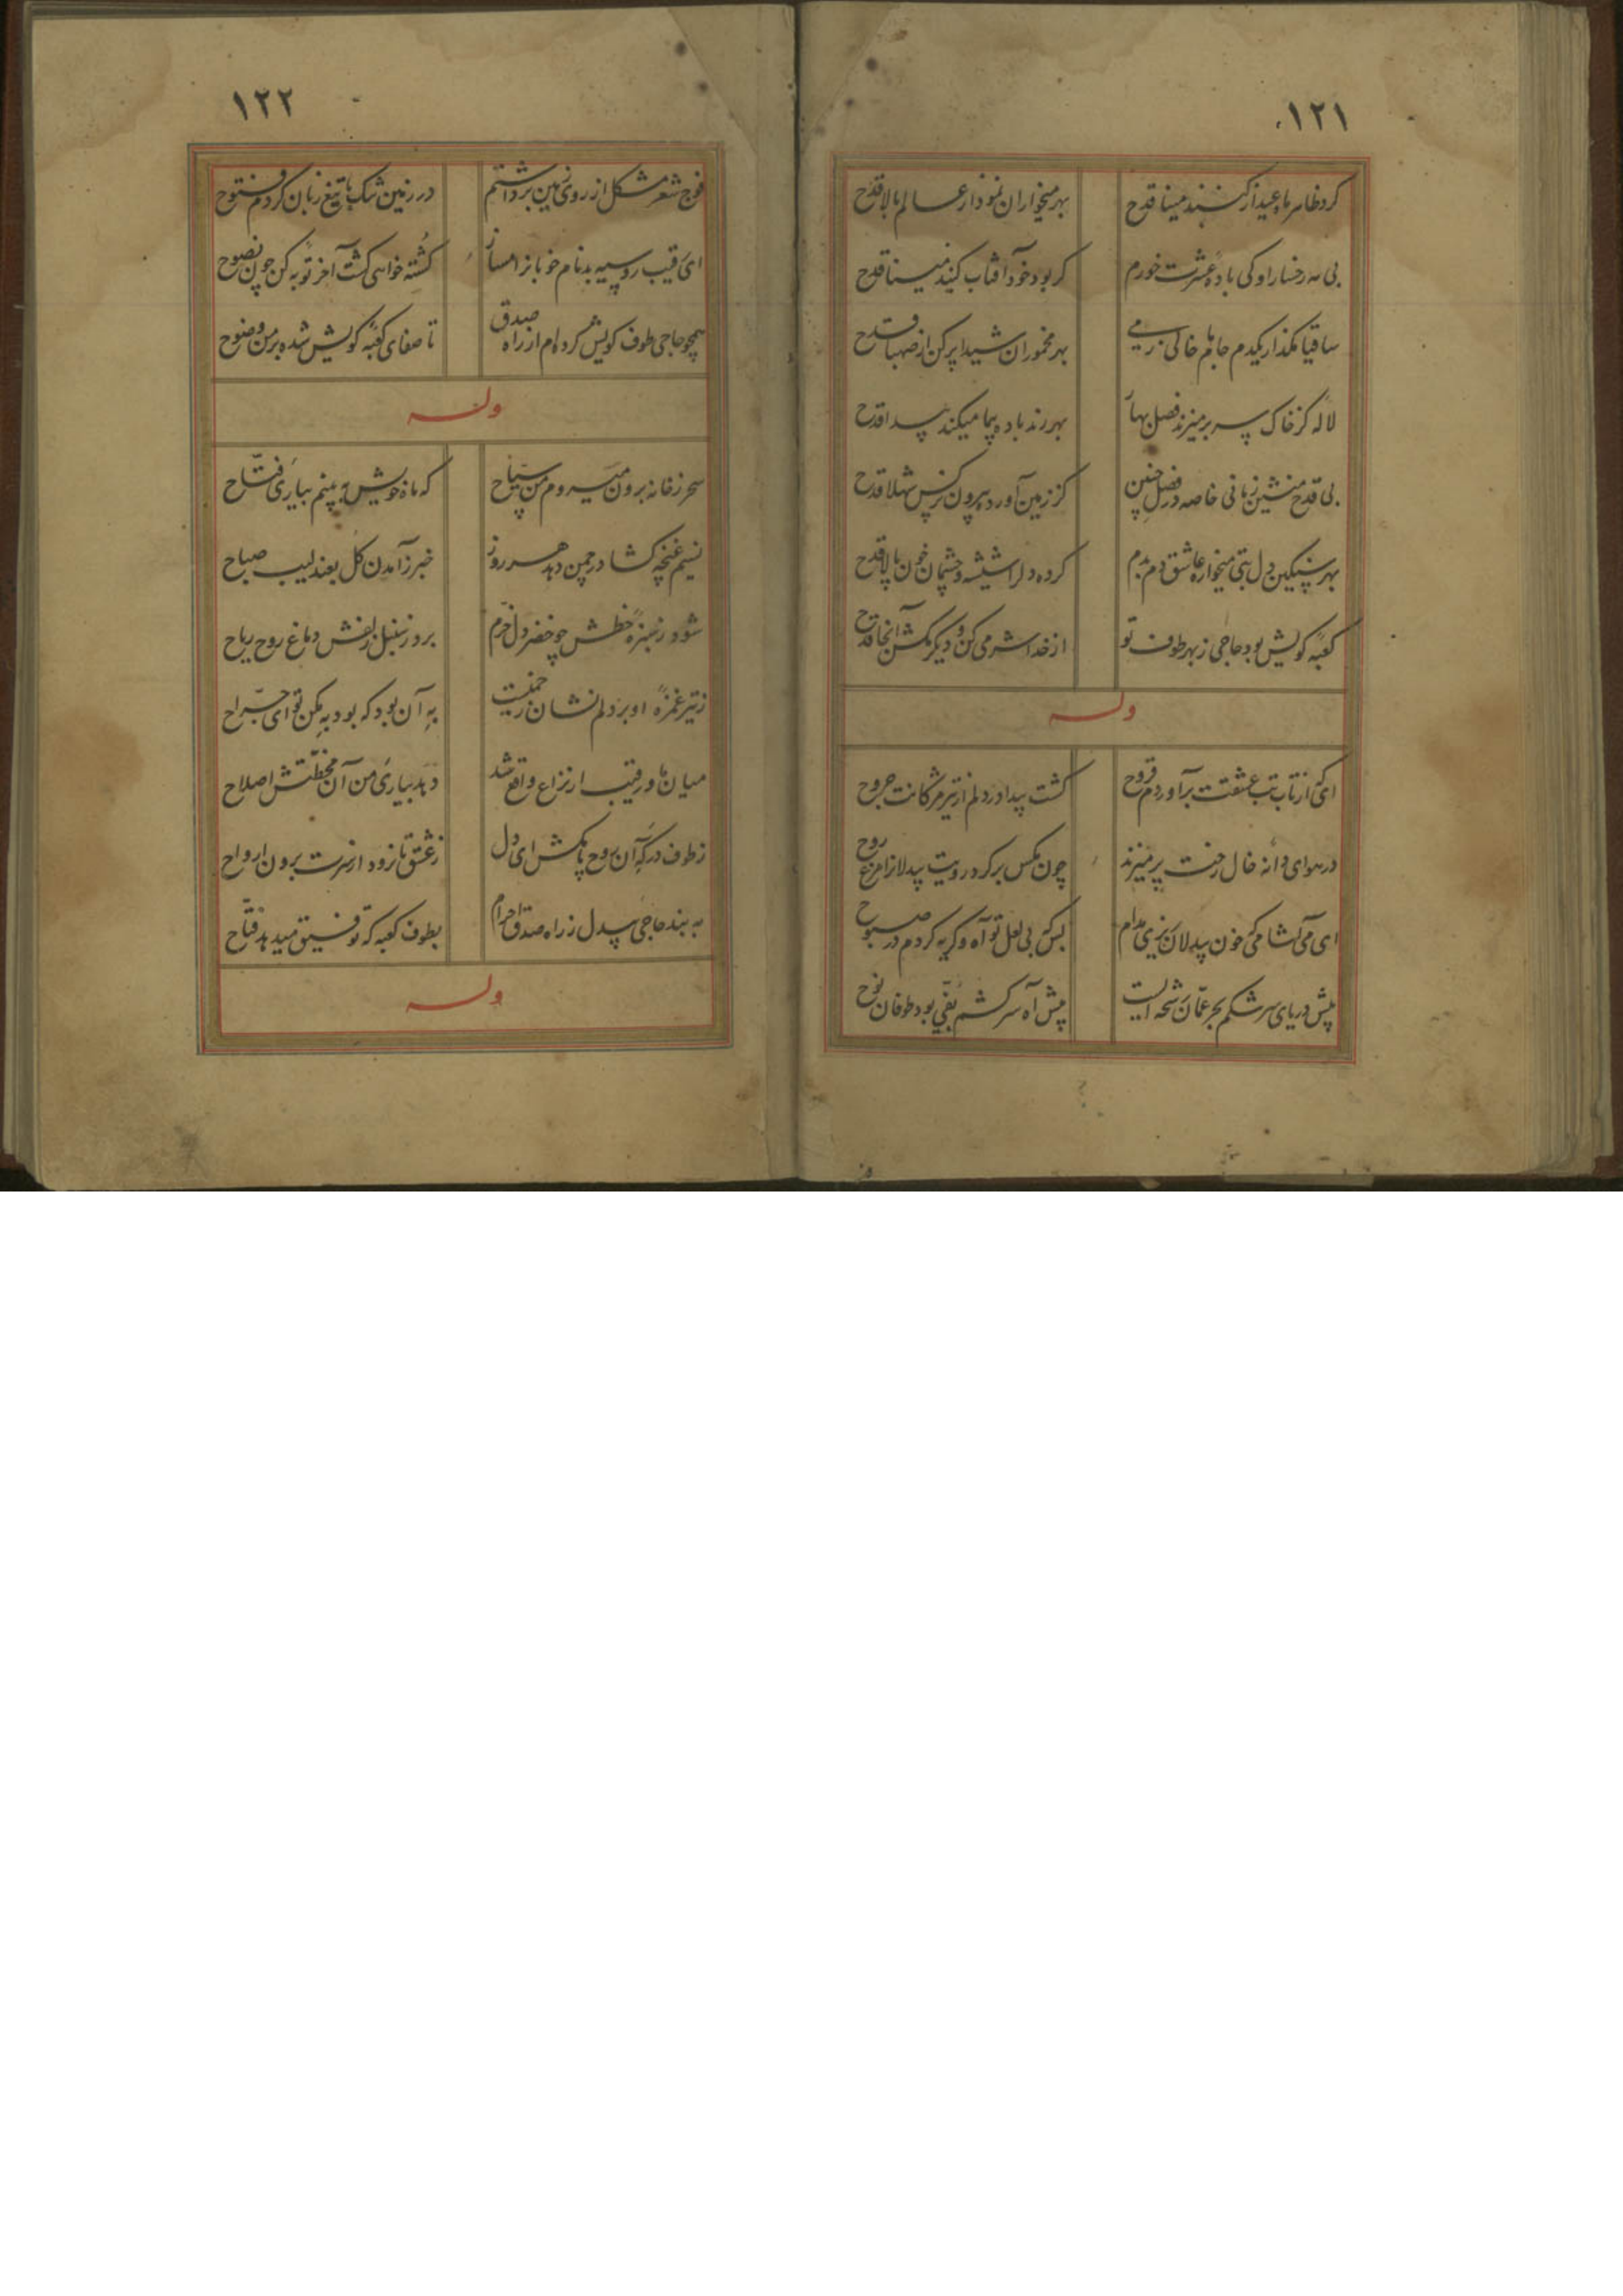 ۱۲۱
کرد ظاهر ماه عید از گنبد مینا قدح
بهر میخواران نمودار عالم بالا قدح
بی مه رخسار او کی باده عشرت خورم
کر بود خود آفتاب کنبد مینا قدح
ساقیا مگذار یکدم جام ما خالی ز می
بهر مخموران شیدا پر کن از صهبا قدح
لاله کز خاک سر بر میزند فصل بهار
بهر رند باده پیما میکند پیدا قدح
بی قدح منشین زمانی خاصه در فصل چنین
کز زمین آورد بیرون نرکس شهلا قدح
بهر سنکین دل بتی میخواره عاشق دم بدم
کرده دلرا شیشه و چشمان خون پالا قدح
کعبه کویش بود حاجی ز بهر طوف تو
از خدا شرمی کن و دیکر مکش آنجا قدح
وله
ای که از تاب تب عشقت برآوردم قروح
کشت پیدا در دلم از تیر مژکانت جروح
در هوای دانه خال رخت پر میزند
چون مکس بر کرد رویت بیدلانرا مرغ روح
ای می آشامی که خون بیدلان ریزی مدام
بسکه بی لعل تو آه و کریه کردم در صبوح
پیش دریای سرشکم بحر عمان رشحه ایست
پیش آه سرکشم تفّی بود طوفان نوح
۱۲۲
فوج شعر مشکل از روی زمین برداشتم
در زمین تنک با تیغ زبان کردم فتوح
ای رقیب روسیه بدنام خوبانرا مساز
کشته خواهی کشت آخر توبه کن چون نصوح
همچو حاجی طوف کویش کرده ام از راه صدق
تا صفای کعبه کویش شده بر من وضوح
وله
سحر ز خانه برون میروم من سیاح
که ماه خویش به بینم بیاری فتاح
نسیم غنچه کشا در چمن دهد هر روز
خبر ز آمدن کل بعندلیب صباح
شود ز سبزه خطش چو خضر دل خرم
برد ز سنبل زلفش دماغ روح ریاح
ز تیر غمزه او بر دلم نشان زخمیست
به آن بود که بود به مکن تو ای جراح
میان ما و رقیب ار نزاع واقع شد
دهد بیاری من آن خطتش اصلاح
ز طوف درکه آن روح پا مکش ای دل
ز عشق تا نرود از سرت برون ارواح
به بند حاجی بیدل ز راه صدق احرام
بطوف کعبه که توفیق میدهد فتاح
وله